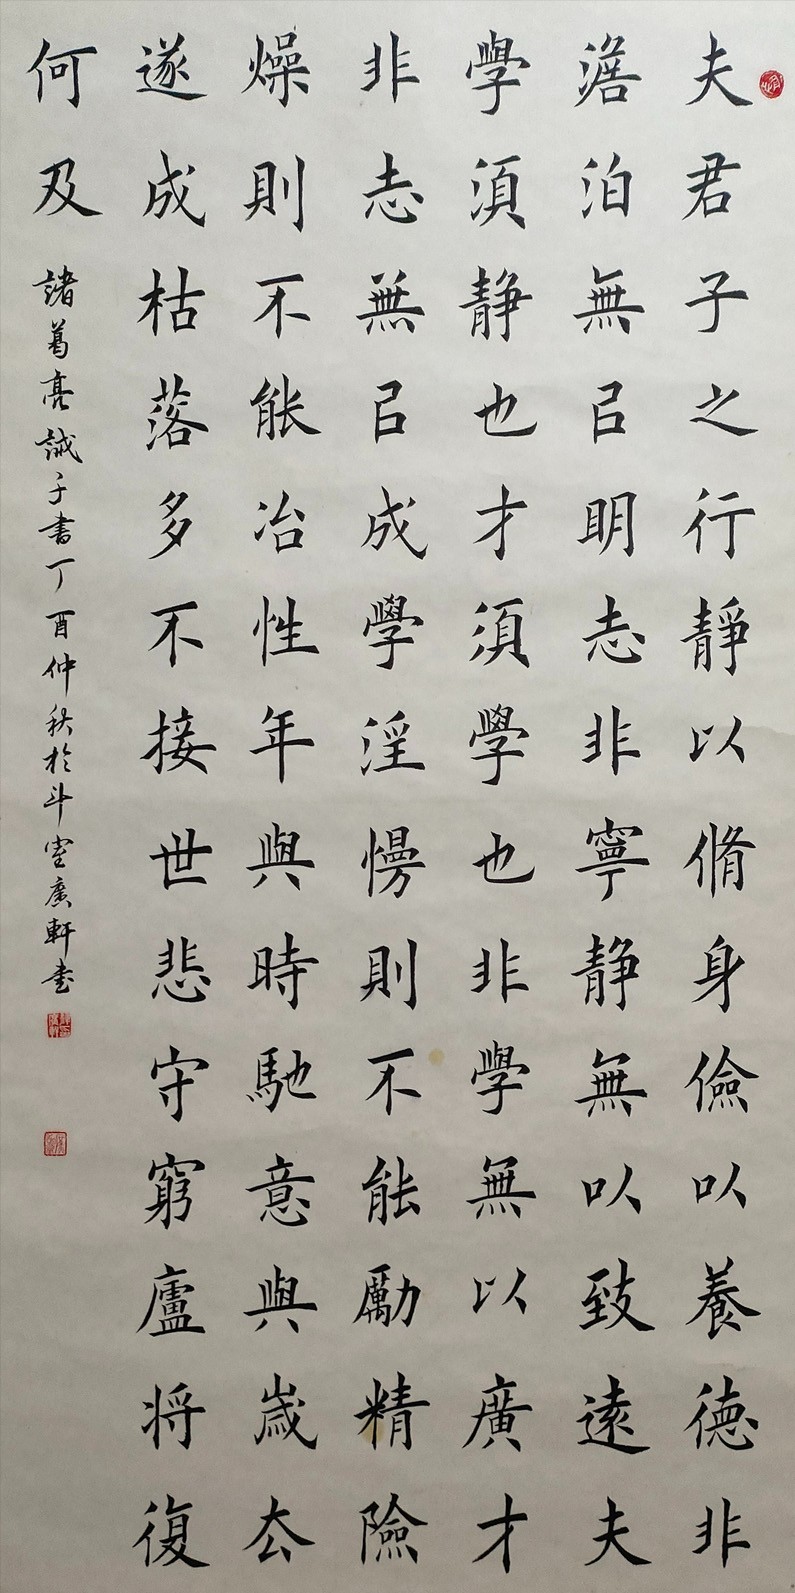 夫君子之行靜以脩身儉以養德非
澹泊無㠯明志非寧静無以致遠夫
學須静也才須學也非學無以廣才
非志無㠯成學淫慢則不能勵精險
燥則不能冶性年與時馳意與歲去
遂成枯落多不接世悲守窮廬将復
何及
諸葛亮誡子書丁酉仲秋於斗室廣軒書